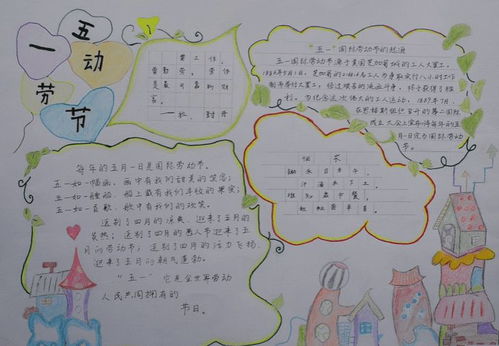 五一
劳动节
要工作，
要勤劳，劳作
是最可靠的财
富。
——拉·封丹
“五一”国际劳动节的起源
五一国际劳动节源于美国芝加哥城的工人大罢工。
1886年5月1日，芝加哥的21.6万工人为争取实行八小时工作
制而举行大罢工，经过艰苦的流血斗争，终于获得了胜
利。为纪念这次伟大的工人运动，1889年7月，
在恩格斯组织召开的第二国际
成立大会上宣布将每年的五
月一日定为国际劳动节。
悯农
锄禾日当午，
汗滴禾下土。
谁知盘中餐，
粒粒皆辛苦。
每年的五月一日是国际劳动节。
五一如一幅画，画中有我们甜美的笑容；
五一如一艘船，船上载有我们丰收的果实；
五一如一首歌，歌中有我们的欢笑。
送别了四月的凉爽，迎来了五月的
炎热；送别了四月的愚人节迎来了五
月的劳动节；送别了四月的活力飞扬，
迎来了五月的朝气蓬勃。
“五一”它是全世界劳动
人民共同拥有的
节日。